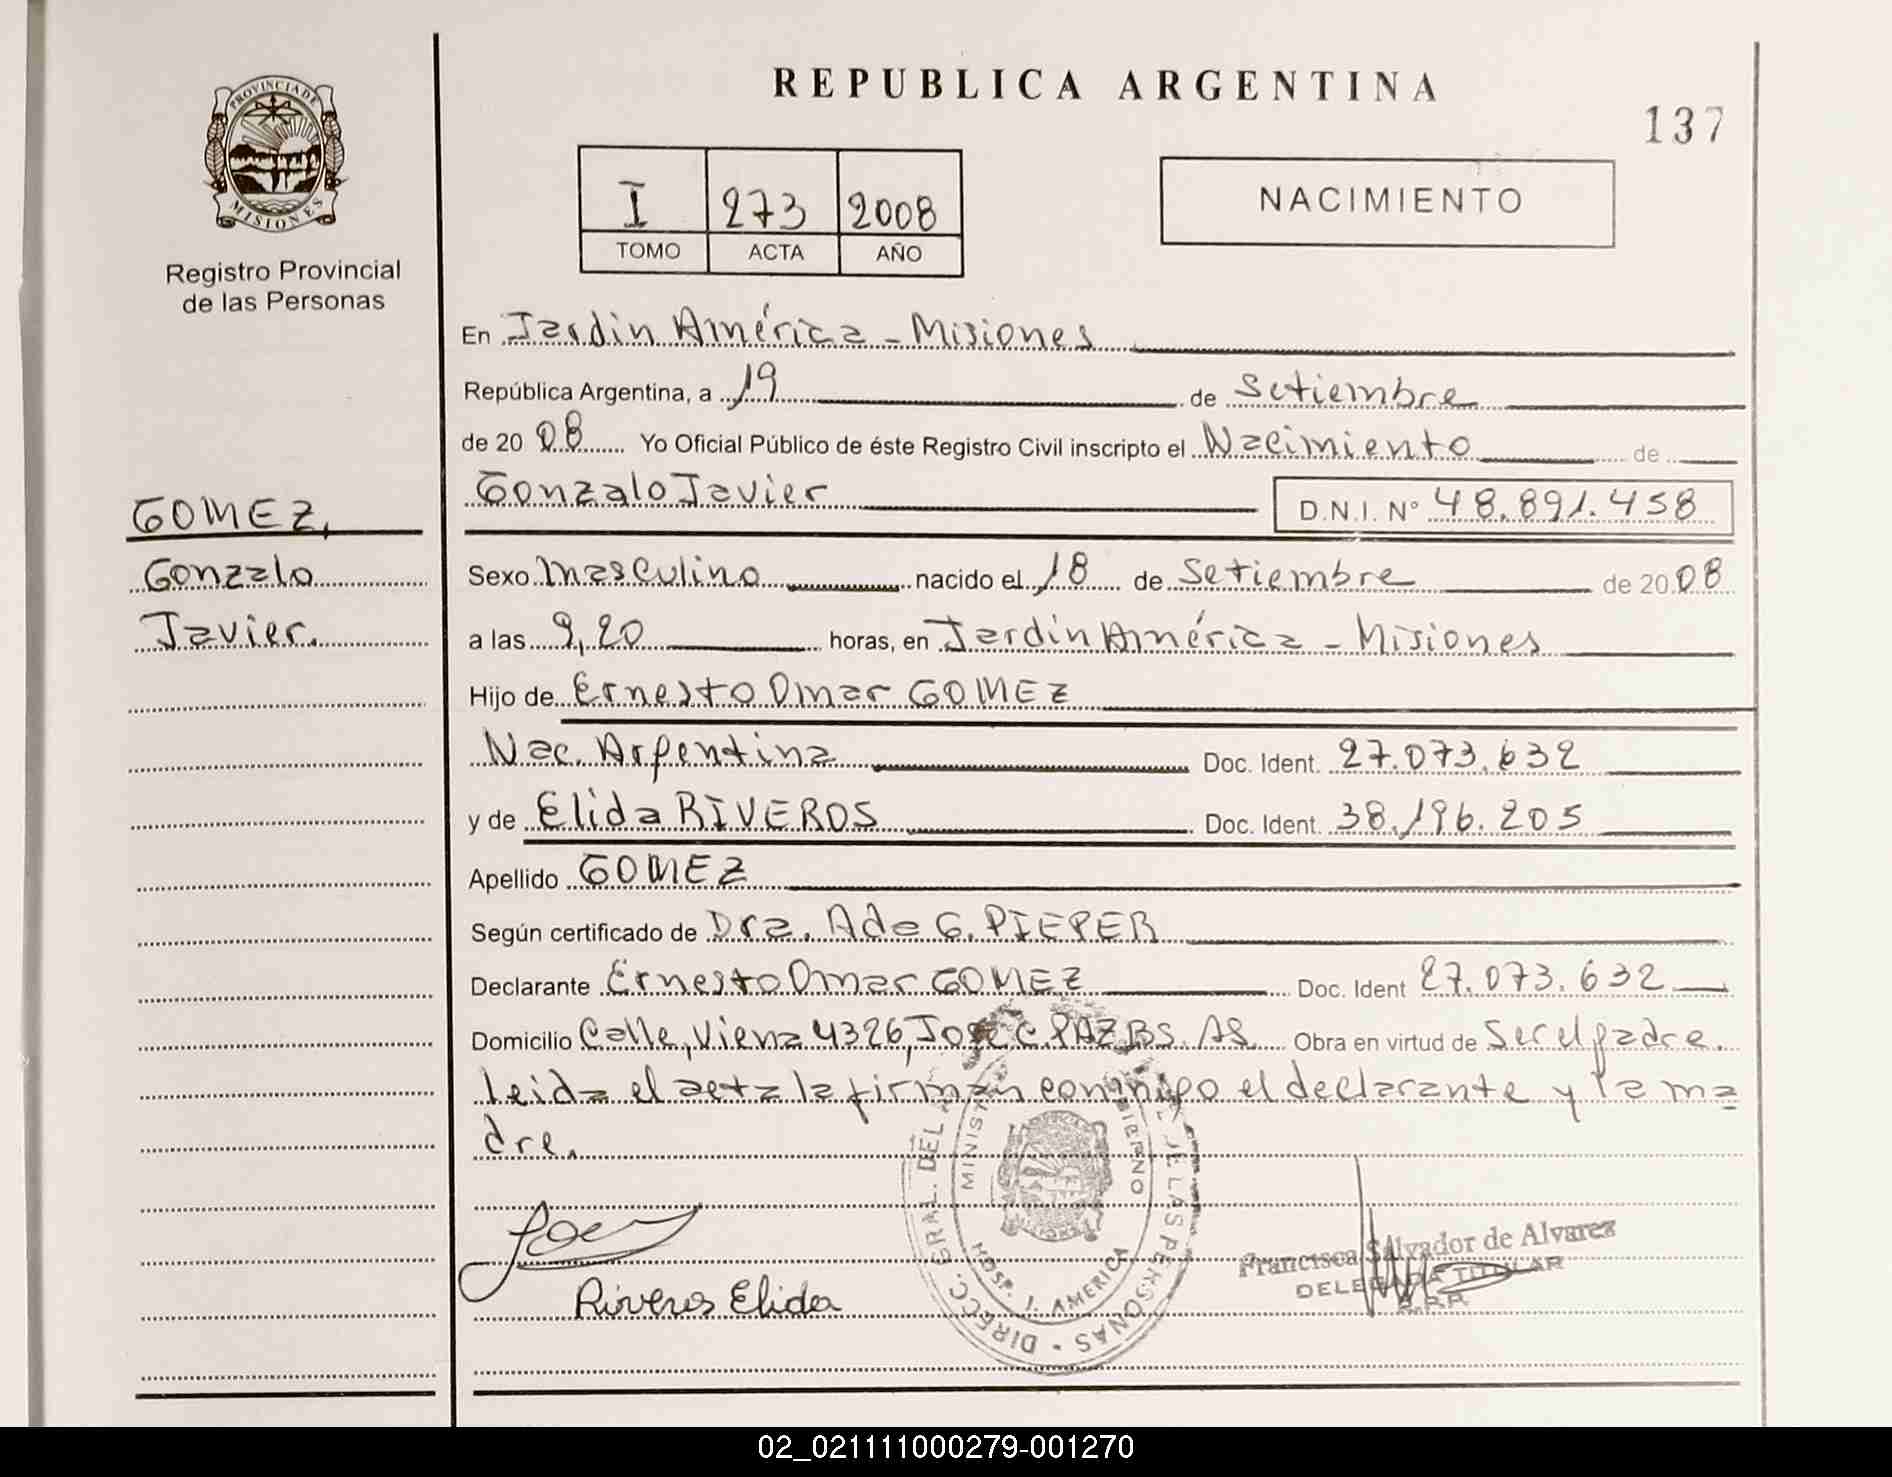 REPUBLICA ARGENTINA
137
PROVINCIA DE
MISIONES
Registro Provincial
de las Personas
I 273 2008
TOMO ACTA AÑO
NACIMIENTO
En Jardin América - Misiones
República Argentina, a 19 de Setiembre
de 20 08 Yo Oficial Público de éste Registro Civil inscripto el Nacimiento de
Gonzalo Javier D.N.I. N° 48.891.458
GOMEZ,
Gonzalo
Javier.
Sexo Masculino nacido el 18 de Setiembre de 20 08
a las 9,20 horas, en Jardin América - Misiones
Hijo de Ernesto Omar GOMEZ
Nac. Argentina Doc. Ident. 27.073.632
y de Elida RIVEROS Doc. Ident. 38.196.205
Apellido GOMEZ
Según certificado de Dra. Ada G. PIEPER
Declarante Ernesto Omar GOMEZ Doc. Ident 27.073.632
Domicilio Calle, Viena 4326, Jose C. PAZ BS. AS. Obra en virtud de Ser el padre.
Leida el acta la firman conmigo el declarante y la ma
dre.
Riveros Elida
DIRECC. GRAL. DEL DE LAS PERSONAS
HOSP. J. AMERICA
Francisca Salvador de Alvarez
DELEGADA TITULAR
02_021111000279-001270